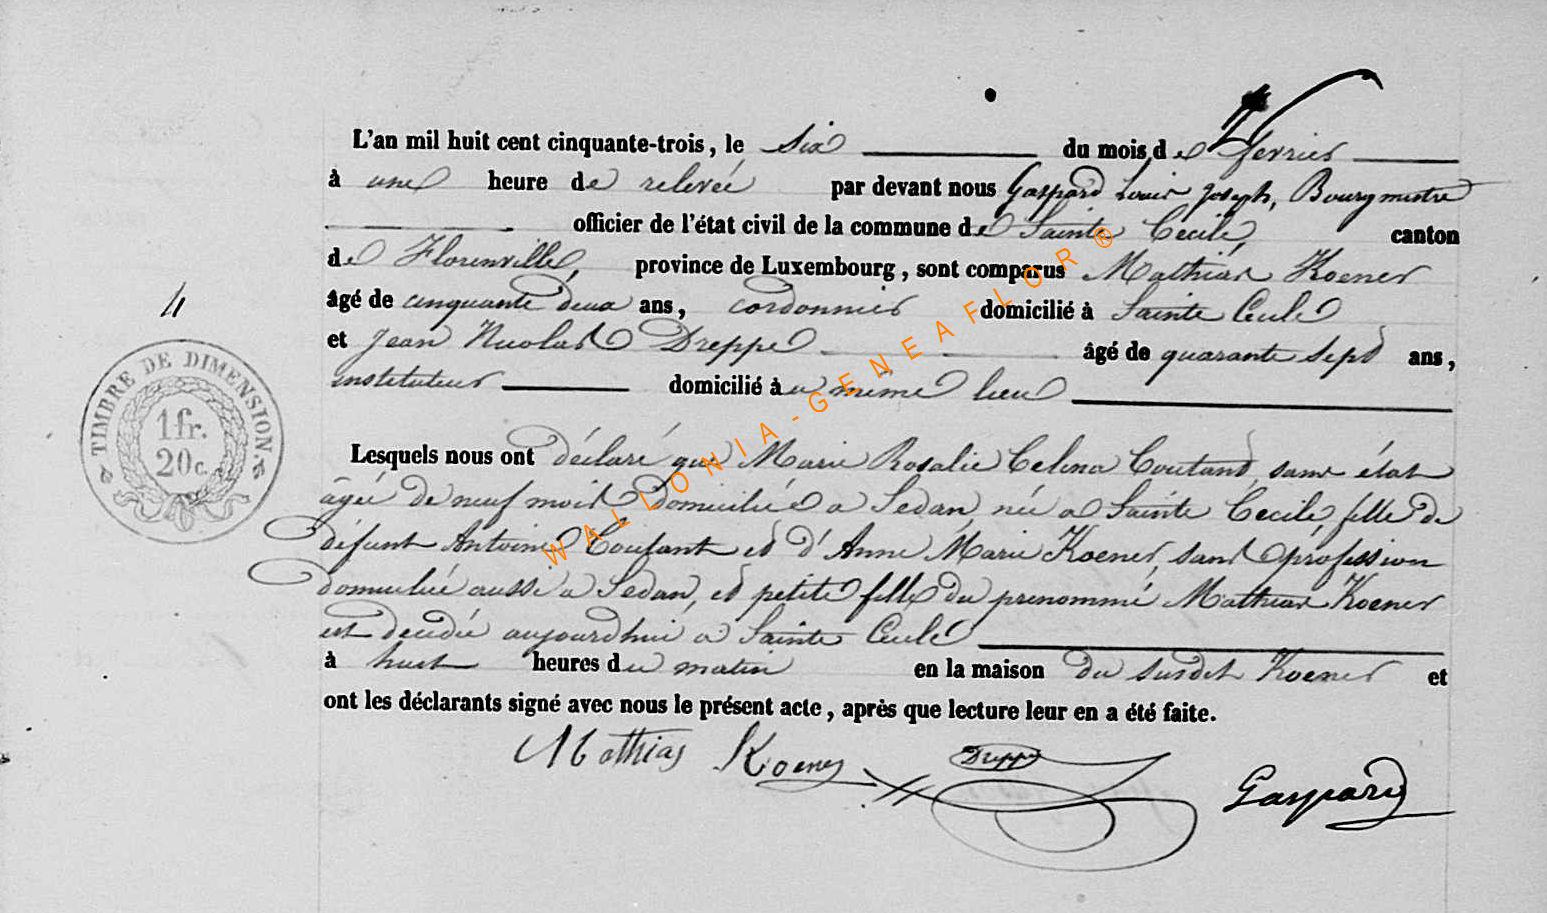 L'an mil huit cent cinquante-trois, le Six du mois de fevrier
à une heure de relevée par devant nous Gaspard Louis Joseph, Bourgmestre
officier de l'état civil de la commune de Sainte Cecile, canton
de Florenville, province de Luxembourg, sont comparus Mathias Koener
âgé de cinquante deux ans, cordonnier domicilié à Sainte Cecile
et Jean Nicolas Dreppe âgé de quarante sept ans,
instituteur domicilié à u même lieu
4
TIMBRE DE DIMENSION.
1 fr.
20 c.
Lesquels nous ont déclaré que Marie Rosalie Celina Coutant sans état
âgée de neuf mois, domiciliée a Sedan née a Sainte Cecile, fille de
défunt Antoine Coutant et d'Anne Marie Koener, sans profession
domiciliée aussi a Sedan, et petite fille du prenommé Mathias Koener
est decedée aujourdhui a Sainte Cecile
à huit heures du matin en la maison du susdit Koener et
ont les déclarants signé avec nous le présent acte, après que lecture leur en a été faite.
Mathias Koener Dreppe Gaspard
WALLONIA-GENEAFLOR ®